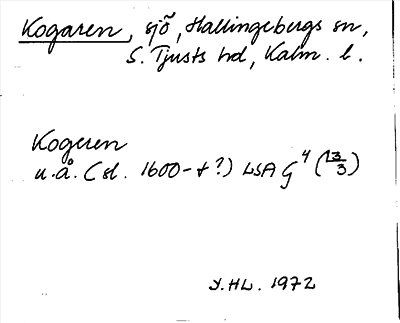 Kogaren, sjö, Hallingebergs sn,
S. Tjusts hd, Kalm. l.
Kogeren
u.å. (sl. 1600-t?) LSA G⁴ (13/3)
Y.HL. 1972